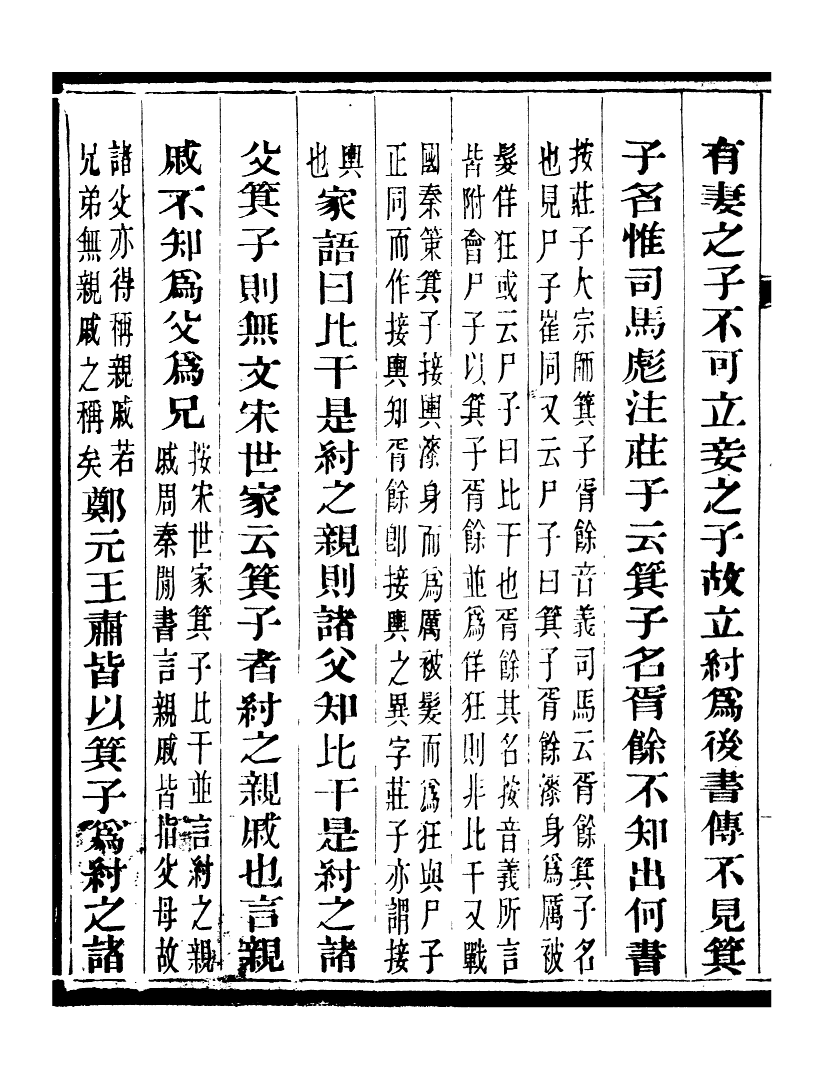 有妻之子不可立妾之子故立紂爲後書傳不見箕
子名惟司馬彪注莊子云箕子名胥餘不知出何書
按莊子大宗師箕子胥餘音義司馬云胥餘箕子名
也見尸子崔同又云尸子曰箕子胥餘漆身爲厲被
髮佯狂或云尸子曰比干也胥餘其名按音義所言
皆附會尸子以箕子胥餘並爲佯狂則非比干又戰
國秦策箕子接輿漆身而爲厲被髮而爲狂與尸子
正同而作接輿知胥餘卽接輿之異字莊子亦謂接
輿
也
家語曰比干是紂之親則諸父知比干是紂之諸
父箕子則無文宋世家云箕子者紂之親戚也言親
戚不知爲父爲兄
按宋世家箕子比干並言紂之親
戚周秦閒書言親戚皆指父母故
諸父亦得稱親戚若
兄弟無親戚之稱矣
鄭元王肅皆以箕子爲紂之諸